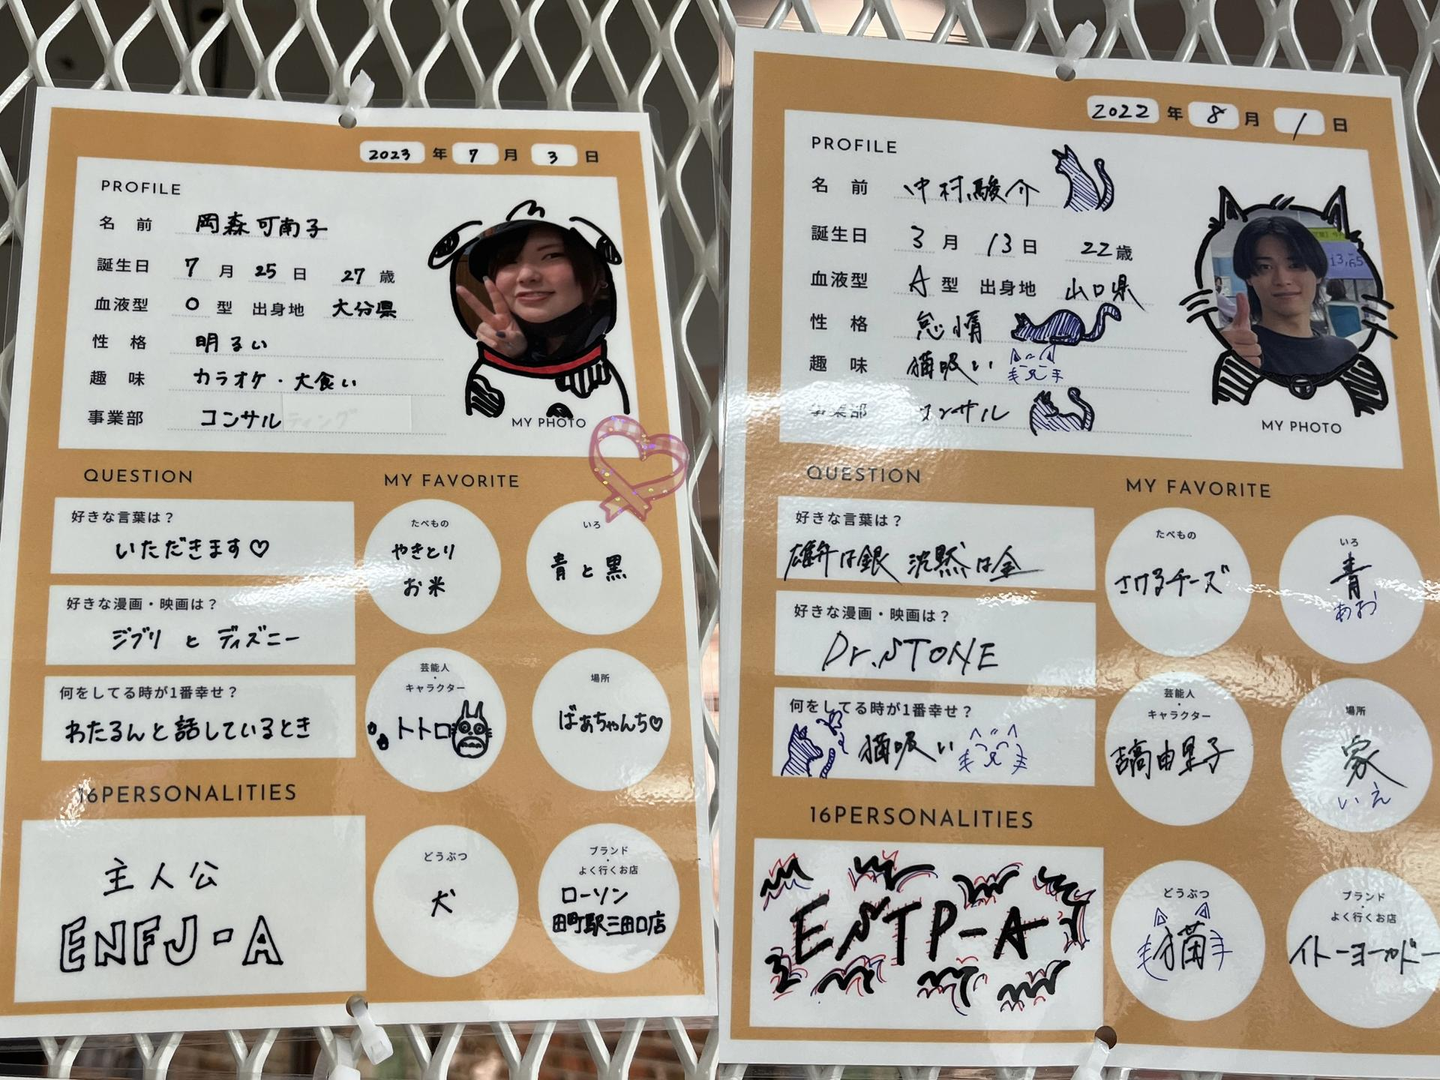 2023 年 7 月 3 日
PROFILE
名 前 岡森可南子
誕生日 7 月 25 日 27 歳
血液型 O 型 出身地 大分県
性 格 明るい
趣 味 カラオケ・大食い
事業部 コンサルティング
MY PHOTO
QUESTION
好きな言葉は？
いただきます♡
好きな漫画・映画は？
ジブリ と ディズニー
何をしてる時が1番幸せ？
わたるんと話しているとき
16PERSONALITIES
主人公
ENFJ-A
MY FAVORITE
たべもの
やきとり
お米
いろ
青と黒
芸能人
・
キャラクター
トトロ
場所
ばあちゃんち♡
どうぶつ
犬
ブランド
・
よく行くお店
ローソン
田町駅三田口店
2022 年 8 月 1 日
PROFILE
名 前 中村駿介
誕生日 3 月 13 日 22 歳
血液型 A 型 出身地 山口県
性 格 怠惰
趣 味 猫吸い
事業部 コンサル
13.65
MY PHOTO
QUESTION
好きな言葉は？
雄弁は銀 沈黙は金
好きな漫画・映画は？
Dr.STONE
何をしてる時が1番幸せ？
猫吸い
16PERSONALITIES
ESTP-A
MY FAVORITE
たべもの
さけるチーズ
いろ
青
あお
芸能人
・
キャラクター
吉高由里子
場所
家
いえ
どうぶつ
猫
ブランド
・
よく行くお店
イトーヨーカドー